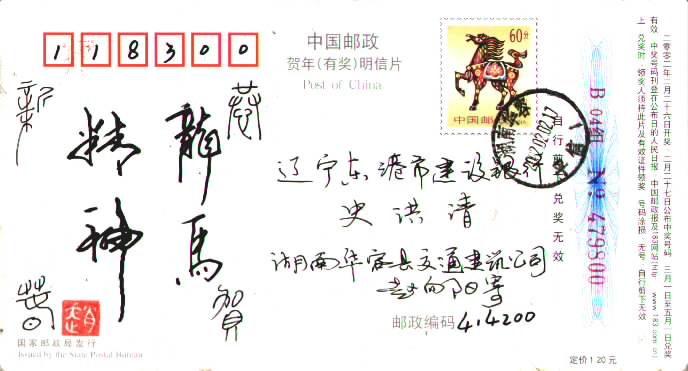 118300
中国邮政
贺年(有奖)明信片
Post of China
60分
中国邮政
2002.02.02.17
龍馬
精神
恭
賀
新
春
辽宁东港市建设银行
史洪清
湖南华容县交通建筑公司
赵向阳寄
邮政编码 414200
国家邮政局发行
Issued by the State Postal Bureau
定价1.20元
自行剪下兑奖无效
B 04组 No 479800
二零零二年二月二十六日开奖 二月二十七日公布中奖号码 三月一日至五月一日兑奖
有效 中奖号码刊登在公布日的人民日报 中国邮政报及183网站(http://www.183.com.cn)
上 兑奖时 领奖人须持此片及有效证件领奖 号码涂损 无号 自行剪下无效